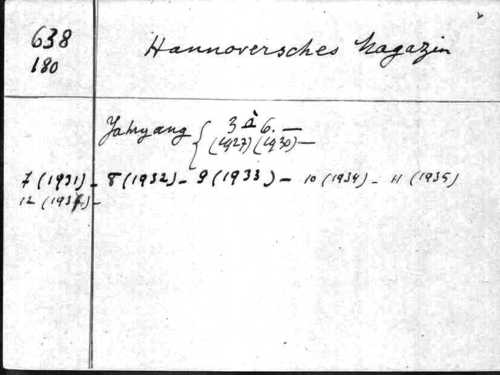 638
180
Hannoversches Magazin
Jahrgang { 3 à 6. —
(1927) (1930) —
7 (1931) - 8 (1932) - 9 (1933) - 10 (1934) - 11 (1935)
12 (1936) -